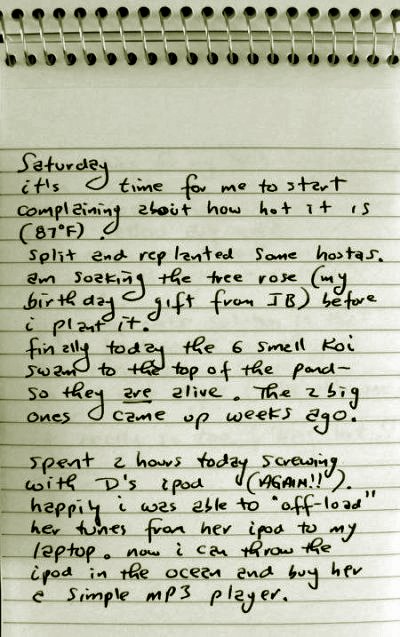 Saturday
it's time for me to start
complaining about how hot it is
(87°F).
split and replanted some hostas.
am soaking the tree rose (my
birthday gift from JB) before
i plant it.
finally today the 6 small Koi
swam to the top of the pond-
so they are alive. The 2 big
ones came up weeks ago.
spent 2 hours today screwing
with D's ipod (AGAIN!!).
happily i was able to "off-load"
her tunes from her ipod to my
laptop. now i can throw the
ipod in the ocean and buy her
a simple mp3 player.